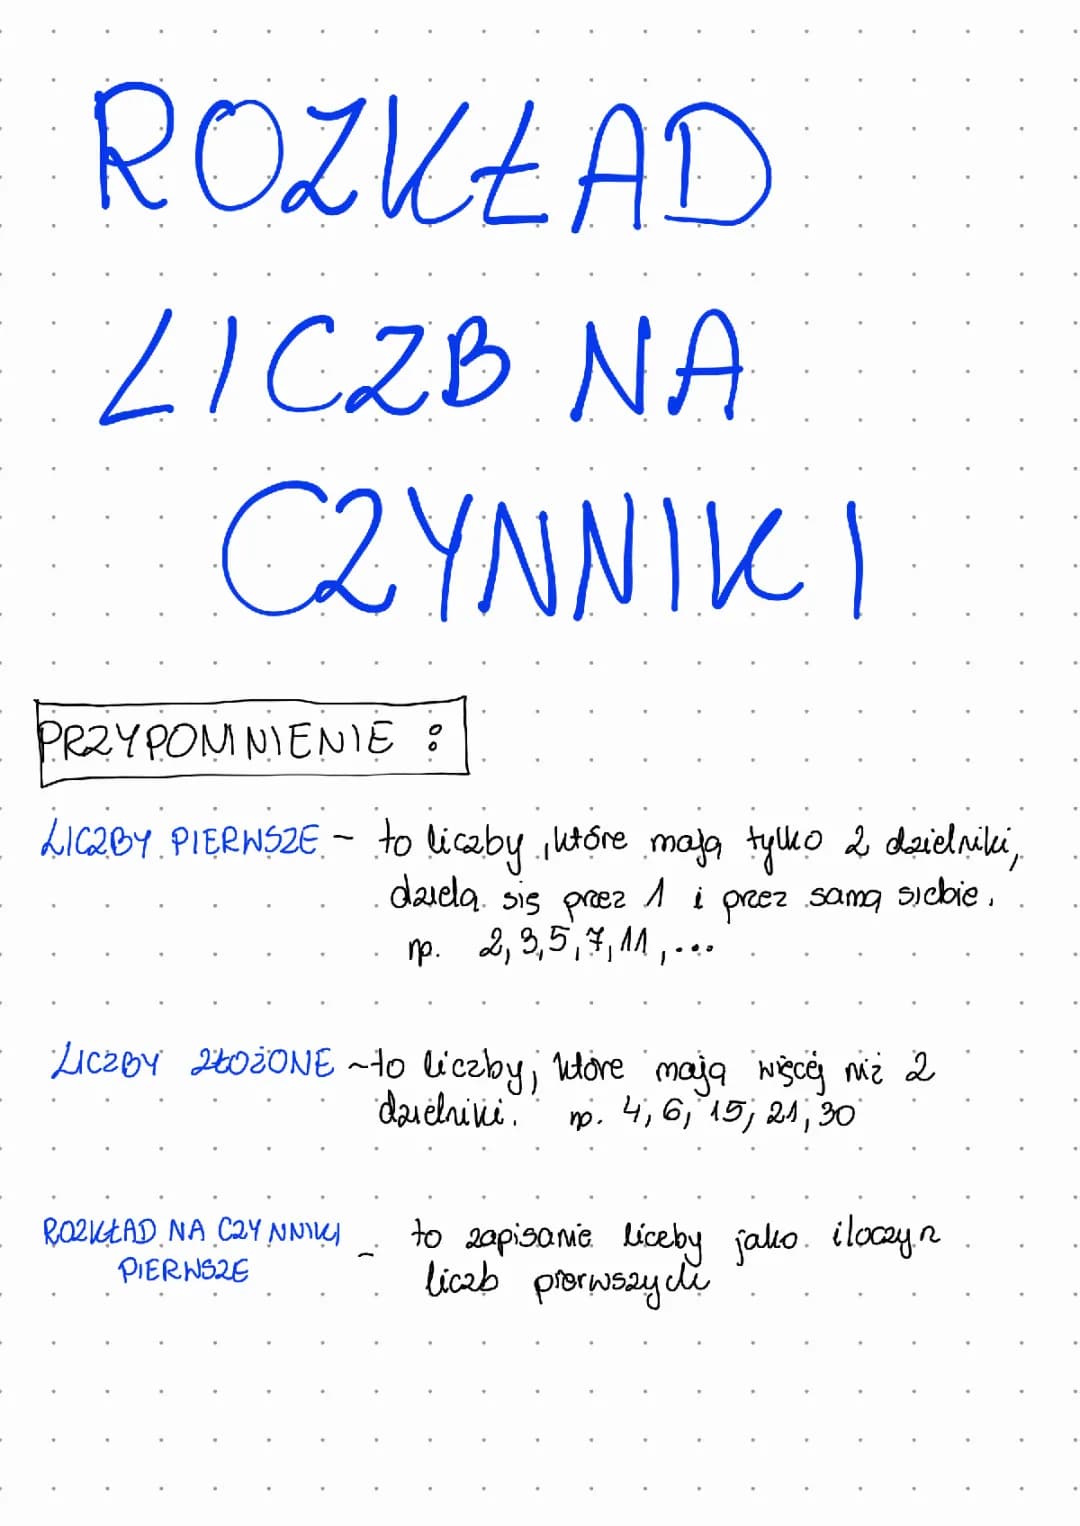 ROZKŁAD
LICZB NA
CZYNNIKI
PRZYPOMNIENIE :
LICZBY PIERWSZE - to liczby, które mają tylko 2 dzielniki,
dzielą się przez 1 i przez samą siebie.
np. 2, 3, 5, 7, 11, ...
LICZBY ZŁOŻONE - to liczby, które mają więcej niż 2
dzielniki. np. 4, 6, 15, 21, 30
ROZKŁAD NA CZYNNIKI - to zapisanie liczby jako iloczyn
PIERWSZE liczb pierwszych